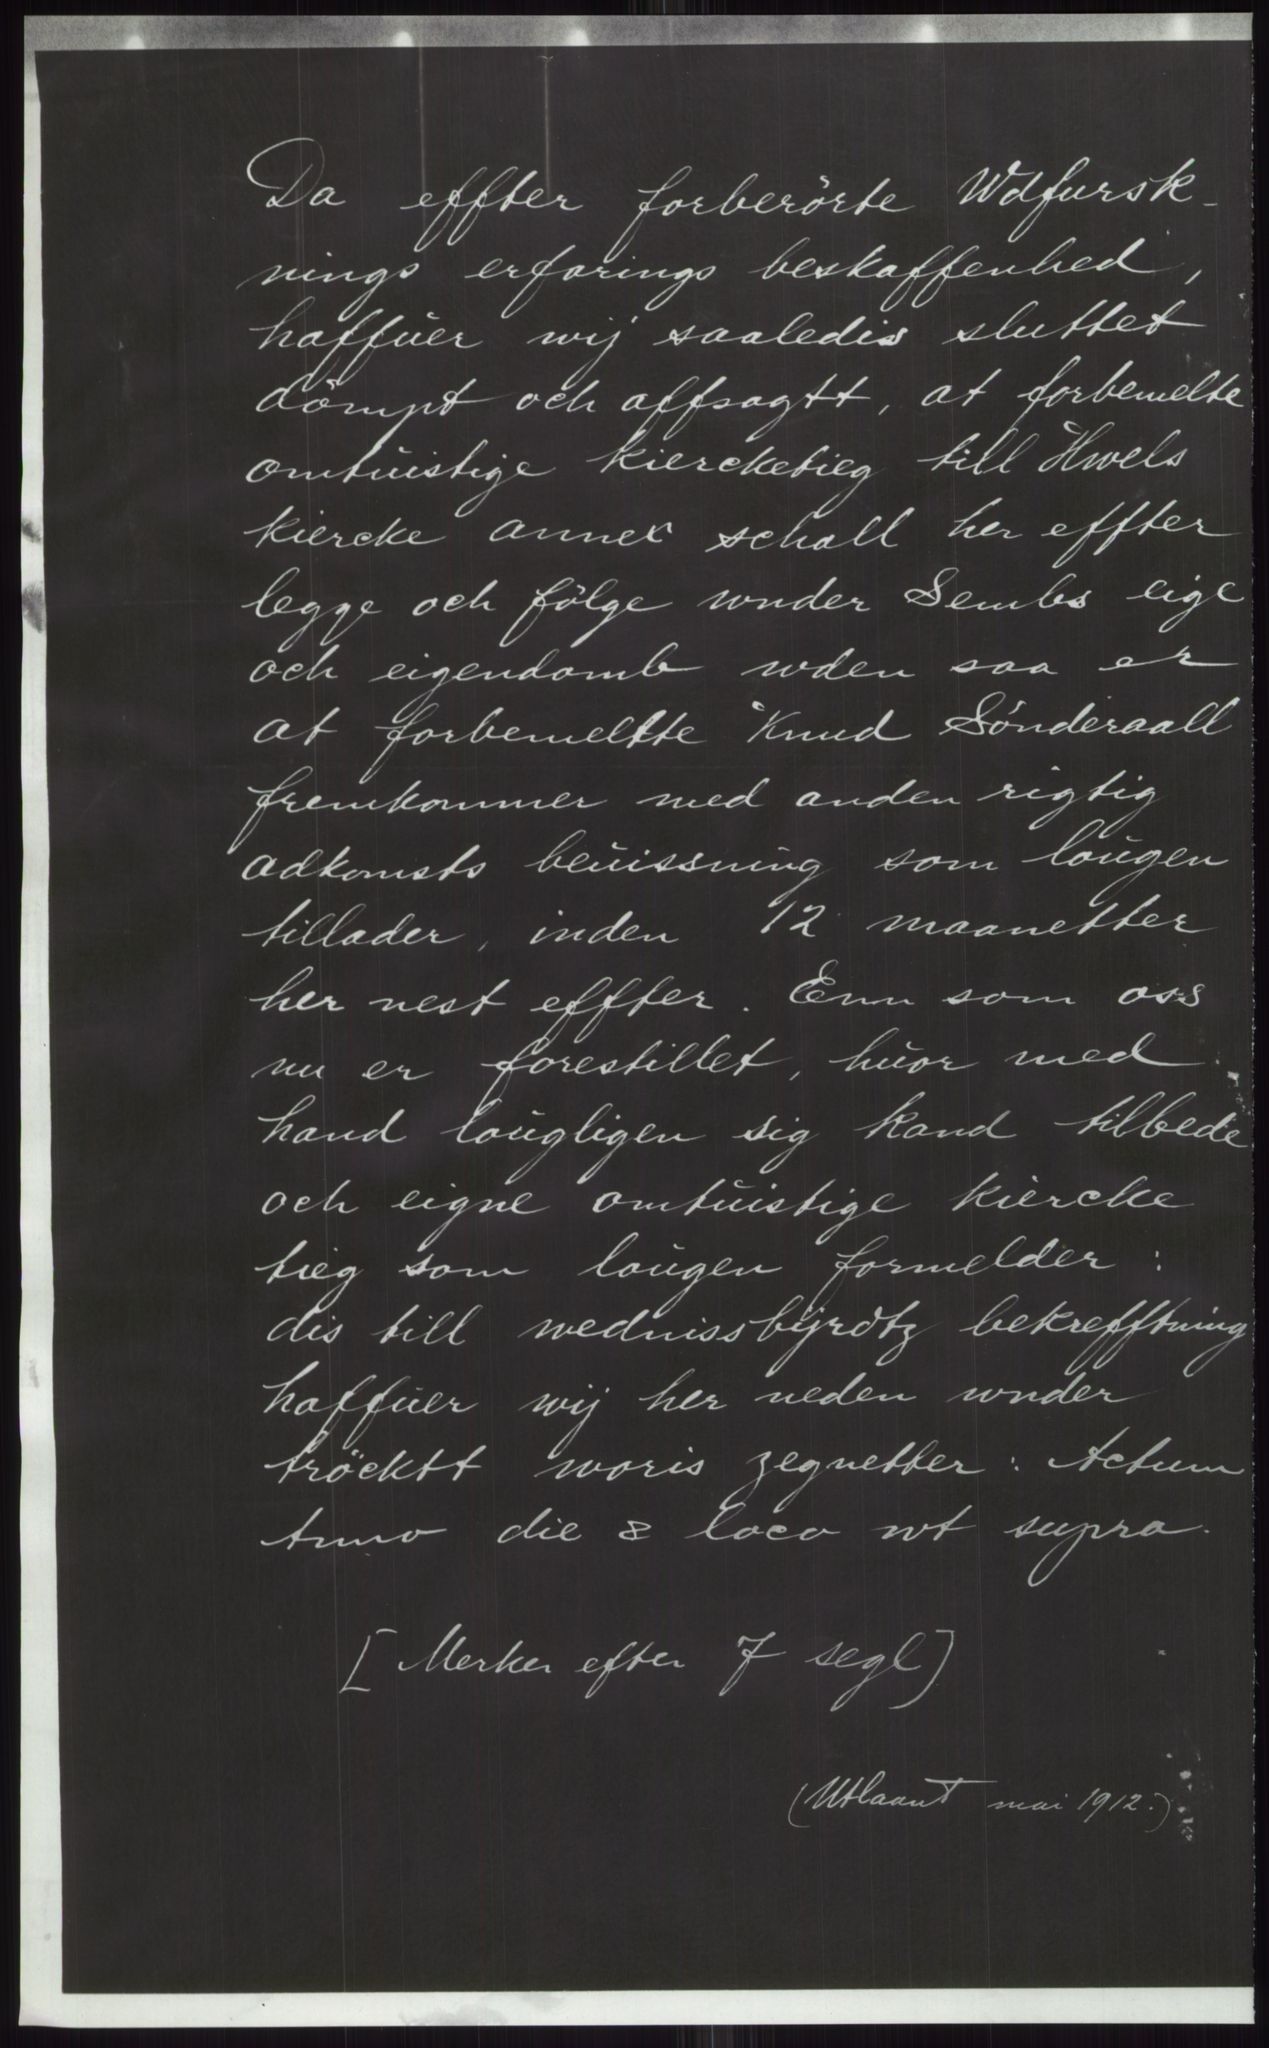 Da effter forberörte Wdfursk-
nings erfarings beskaffenhed,
haffuer wij saaledis sluttet
dömpt och affsagtt, at forbemelte
omtuistige kierchetieg till Hwels
kiercke annex schall her effter
legge och fölge wnder Sembs eige
och eigendomb wden saa er
at forbemeltte Knud Sønderaall
fremkommer med anden rigtig
adkomsts beuissning som lougen
tillader, inden 12 maanetter
her nest effter. Enn som oss
nu er forestillet, huor med
hand lougligen sig kand tilbede
och eigne omtuistige kiercke
tieg som lougen formelder:
dis till wednissbyrdtz bekrefftning
haffuer wij her neden wnder
tröcktt woris zegnetter: Actum
Anno die & loco wt supra.
[Merker efter 7 segl]
(Utlaant mai 1912.)